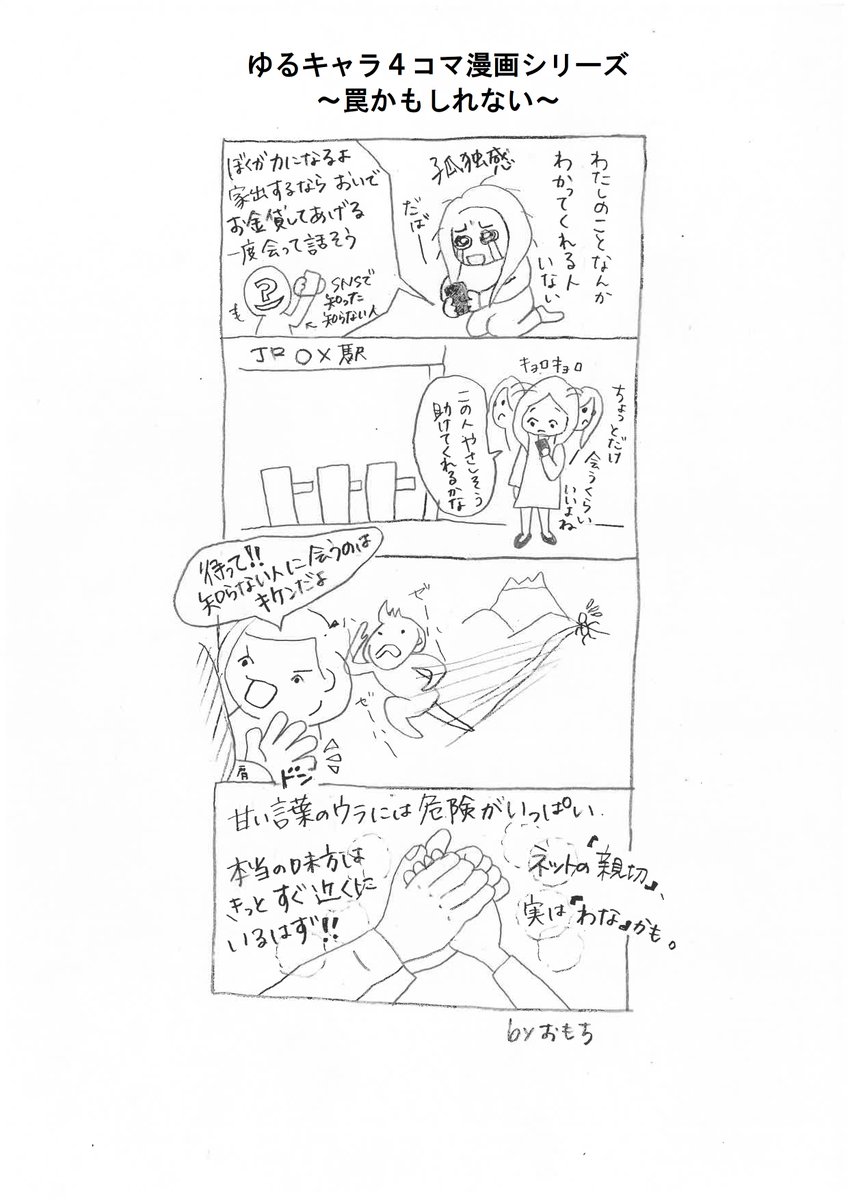 ゆるキャラ４コマ漫画シリーズ
～罠かもしれない～
わたしのことなんか
わかってくれる人
いない
孤独感
だばー
ぼくが力になるよ
家出するなら おいで
お金貸してあげる
一度会って話そう
?
も
SNSで
知った
知らない人
JR ○×駅
キョロキョロ
ちょっとだけ
会うくらい
いいよね
この人やさしそう
助けてくれるかな
待って!!
知らない人に会うのは
キケンだよ
ぜーい
ぜーい
肩
ドン
甘い言葉のウラには危険がいっぱい.
ネットの『親切』、
実は『わな』かも。
本当の味方は
きっと すぐ 近くに
いるはず!!
byおもち